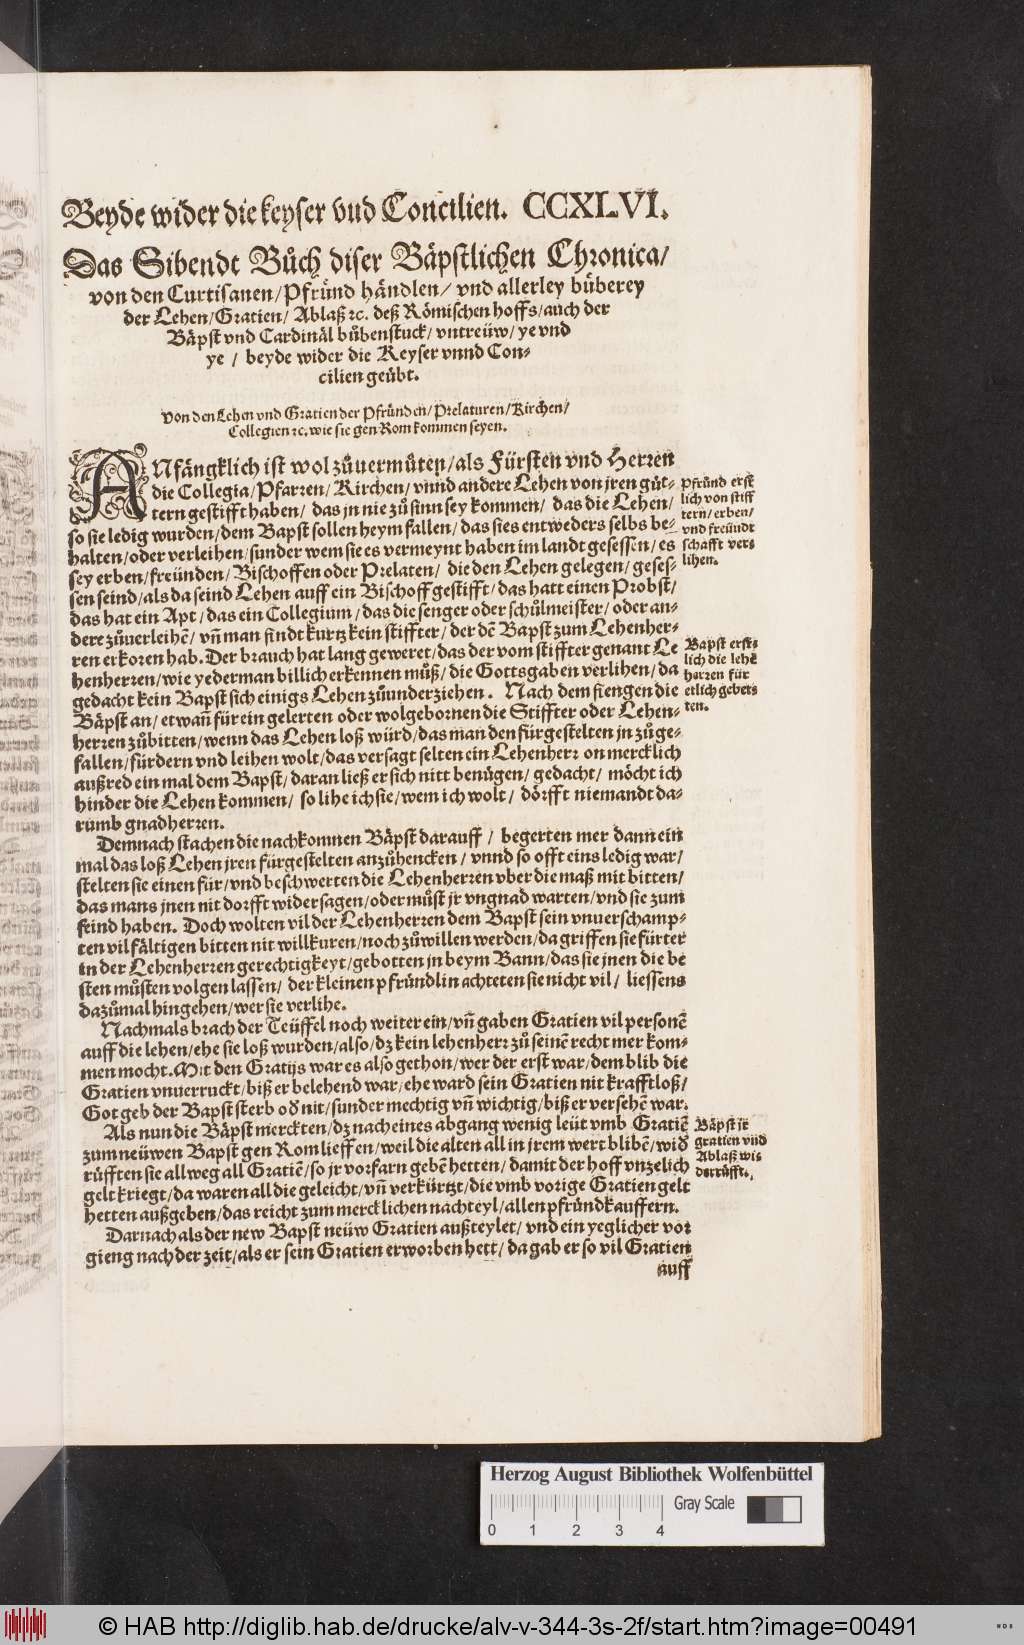 Beyde wider die keyser vnd Concilien. CCXLVI.
Das Sibendt Bůch diser Bäpstlichen Chronica/
von den Curtisanen/Pfründ händlen/ vnd allerley büberey
der Lehen/Gratien/ Ablaß ꝛc. deß Römischen hoffs/auch der
Bäpst vnd Cardinäl bůbenstuck/ vntreüw/ ye vnd
ye / beyde wider die Keyser vnnd Con-
cilien geübt.
Von den Lehen vnd Gratien der Pfründen/ Prelaturen/ Kirchen/
Collegien ꝛc. wie sie gen Rom kommen seyen.
ANfängklich ist wol zůuermůten/als Fürsten vnd Herren
die Collegia/Pfarren/ Kirchen/ vnnd andere Lehen von jren gůt-
tern gestifft haben/ das jn nie zů sinn sey kommen/ das die Lehen/
so sie ledig wurden/dem Bapst sollen heym fallen/ das sies entweders selbs be-
halten/oder verleihen/sunder wem sie es vermeynt haben im landt gesessen/ es
sey erben/freünden/ Bischoffen oder Prelaten/ die den Lehen gelegen/geses-
sen seind/als da seind Lehen auff ein Bischoff gestifft/das hatt einen Probst/
das hat ein Apt/das ein Collegium/das die senger oder schůlmeister/oder an-
dere zůuerleihē/ vñ man findt kurtz kein stiffter/der dē Bapst zum Lehenher-
ren erkoren hab. Der brauch hat lang geweret/das der vom stiffter genant Le
henherren/wie yederman billich erkennen můß/die Gottsgaben verlihen/da
gedacht kein Bapst sich einigs Lehen zůunderziehen. Nach dem fiengen die
Bäpst an/etwañ für ein gelerten oder wolgebornen die Stiffter oder Lehen-
herren zůbitten/wenn das Lehen loß würd/das man den fürgestelten jn zůge-
fallen/fürdern vnd leihen wolt/das versagt selten ein Lehenherr on mercklich
außred ein mal dem Bapst/daran ließ er sich nitt benügen/ gedacht/ möcht ich
hinder die Lehen kommen/ so lihe ich sie/wem ich wolt/ dörfft niemandt da-
rumb gnadherren.
Demnach stachen die nachkomnen Bäpst darauff / begerten mer dann ein
mal das loß Lehen jren fürgestelten anzůhencken/ vnnd so offt eins ledig war/
stelten sie einen für/vnd beschwerten die Lehenherren vber die maß mit bitten/
das mans jnen nit dorfft widersagen/oder můst jr vngnad warten/vnd sie zum
feind haben. Doch wolten vil der Lehenherren dem Bapst sein vnuerschamp-
ten vilfältigen bitten nit willkuren/noch zůwillen werden/da griffen sie fürter
in der Lehenherren gerechtigkeyt/gebotten jn beym Bann/das sie jnen die be
sten můsten volgen lassen/ der kleinen pfründlin achteten sie nicht vil/ liessens
dazůmal hingehen/wer sie verlihe.
Nachmals brach der Teüffel noch weiter ein/vñ gaben Gratien vil personē
auff die lehen/ehe sie loß wurden/also/dz kein lehenherr zů seinē recht mer kom-
men mocht. Mit den Gratijs war es also gethon/wer der erst war/dem blib die
Gratien vnuerruckt/biß er belehend war/ehe ward sein Gratien nit krafftloß/
Got geb der Bapst sterb oð nit/sunder mechtig vñ wichtig/biß er versehē war.
Als nun die Bäpst merckten/dz nach eines abgang wenig leüt vmb Gratiē
zum neüwen Bapst gen Rom lieffen/weil die alten all in jrem wert blibē/wið
růfften sie allweg all Gratiē/so jr vorfarn gebē hetten/damit der hoff vnzelich
gelt kriegt/da waren all die geleicht/vñ verkürtzt/die vmb vorige Gratien gelt
hetten außgeben/das reicht zum mercklichen nachteyl/allen pfründkauffern.
Darnach als der new Bapst neüw Gratien außteylet/ vnd ein yeglicher vor
gieng nach der zeit/als er sein Gratien erworben hett/da gab er so vil Gratien
auff
Pfründ erst
lich von stiff
tern/erben/
vnd freündt
schafft ver-
lihen.
Bapst erst-
lich die lehē
herren für
etlich gebet-
ten.
Bäpst jr
gratien vnd
Ablaß wi-
derrüfft.
Herzog August Bibliothek Wolfenbüttel
Gray Scale
0 1 2 3 4
© HAB http://diglib.hab.de/drucke/alv-v-344-3s-2f/start.htm?image=00491